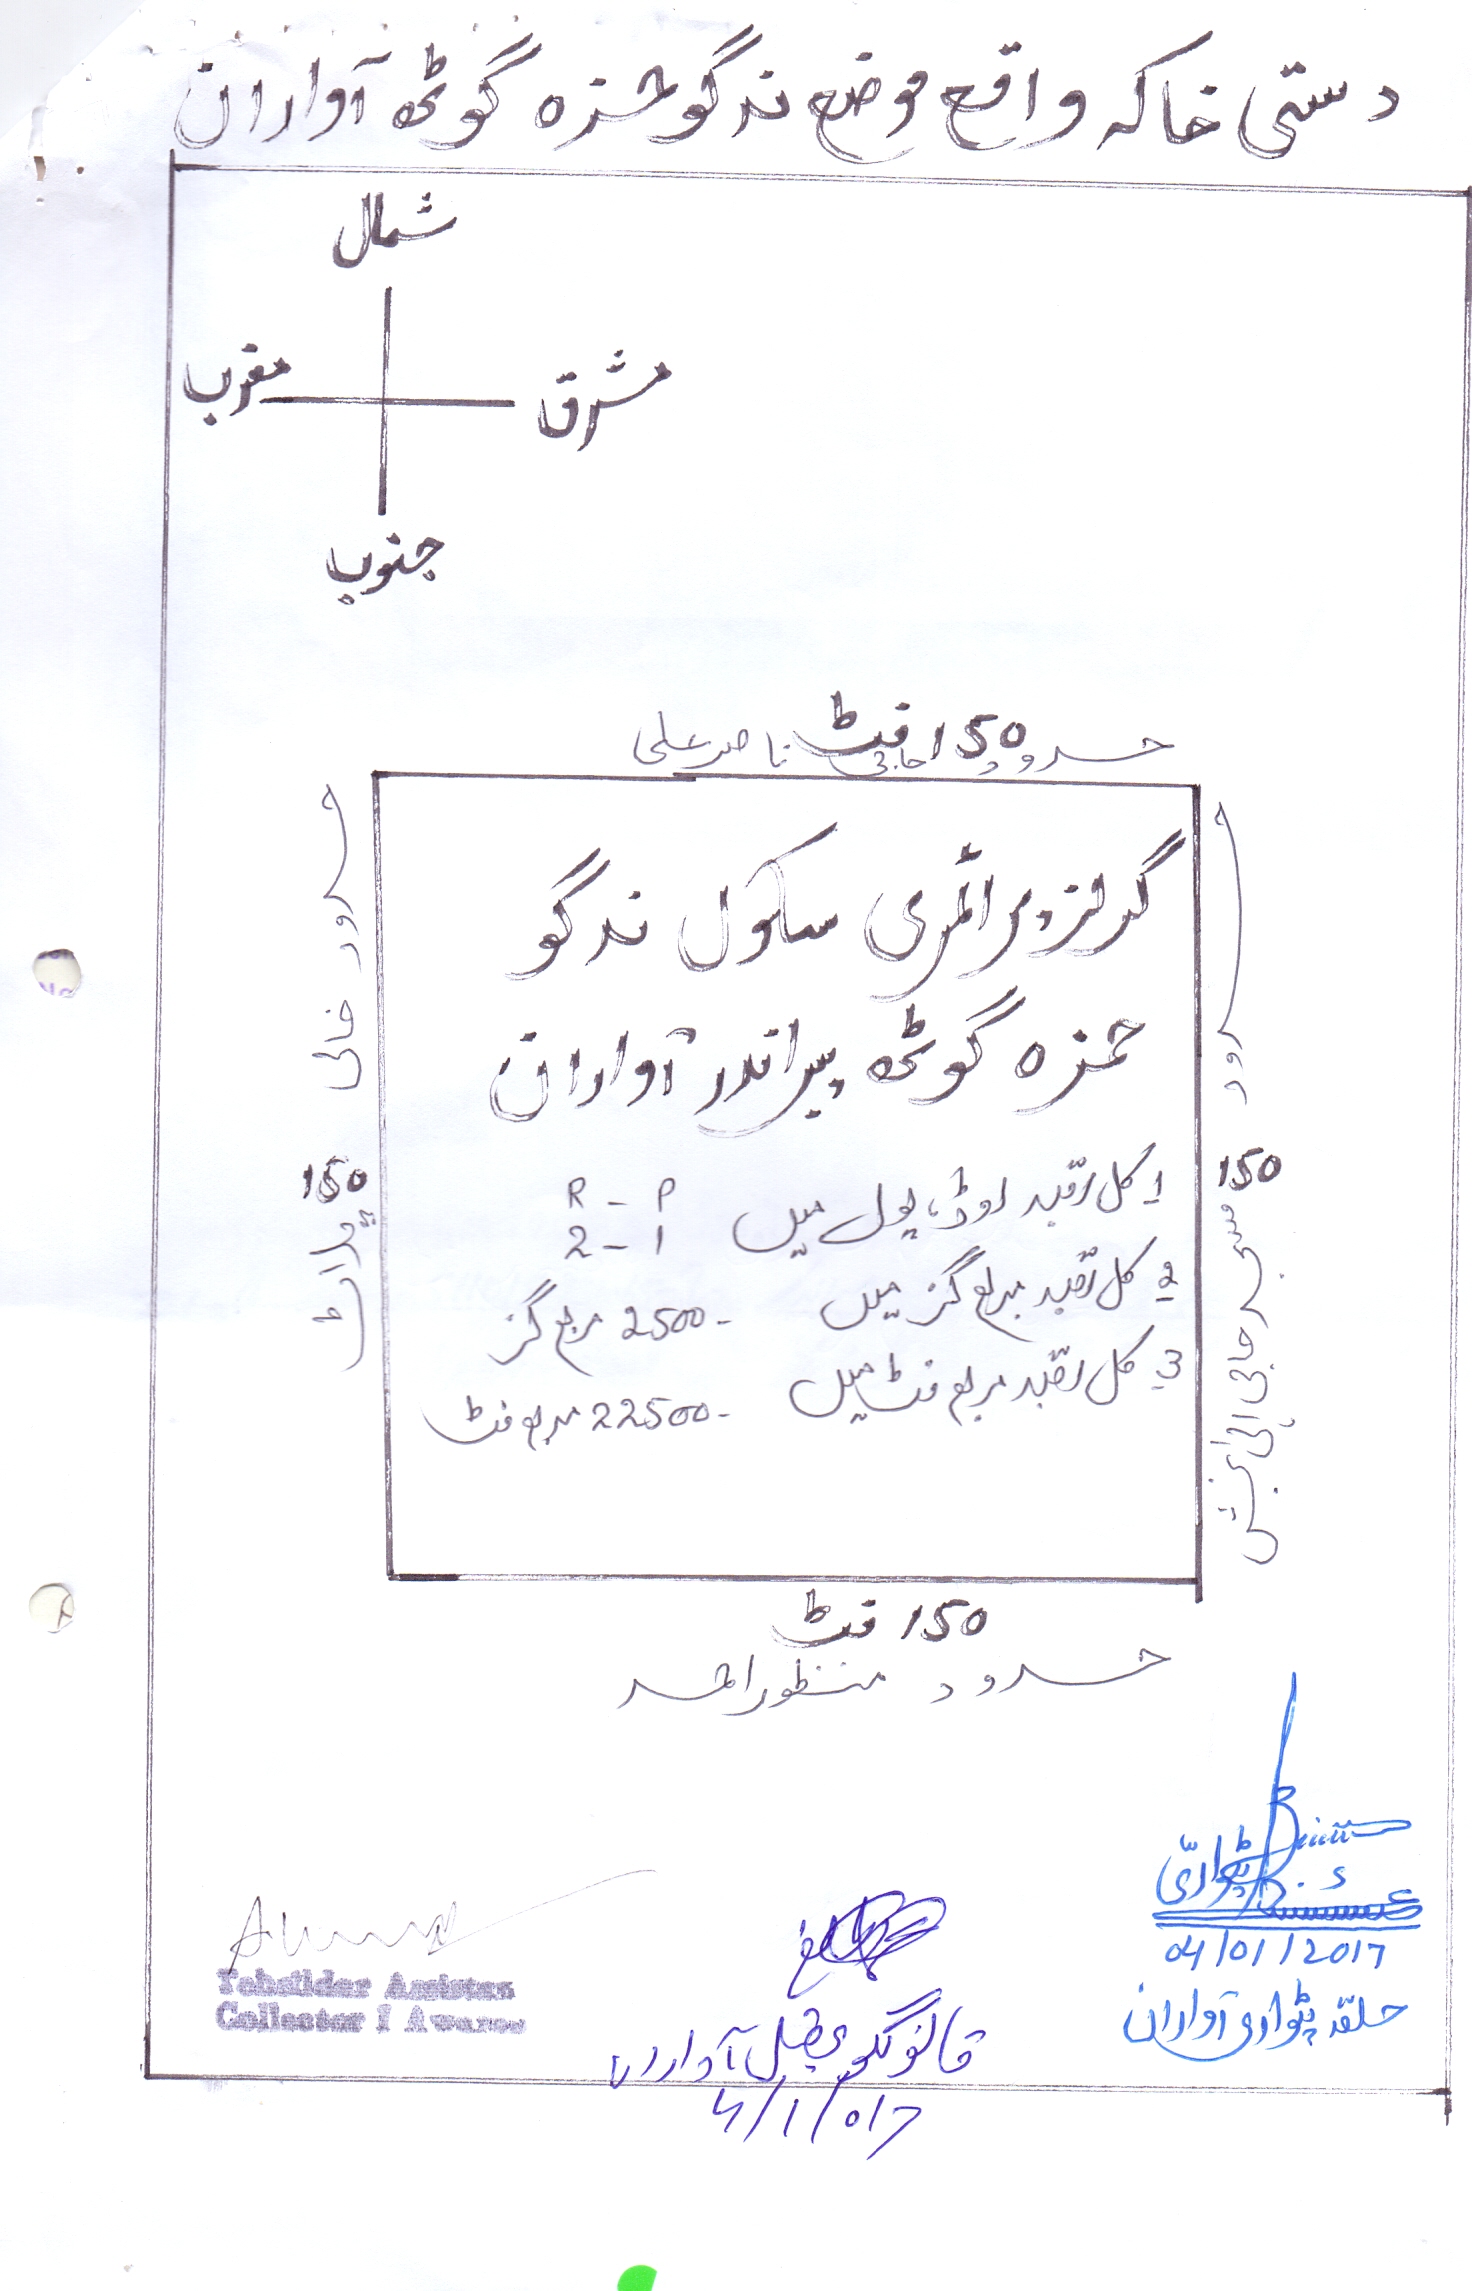 دستی خاکہ واقع موضع ندگو حمزہ گوٹھ آواران
شمال
مغرب
مشرق
جنوب
150 فٹ
حدود حاجی ناصر علی
حدود خالی
150
پلاٹ
حدود
150
مسمی حاجی الہی بخش
گرلز پرائمری سکول ندگو
حمزہ گوٹھ پیراندر آواران
1 کل رقبہ روڈ، پول میں R - P
2 - 1
2 کل رقبہ مربع گز میں - 2500 مربع گز
3 کل رقبہ مربع فٹ میں - 22500 مربع فٹ
150 فٹ
حدود منظور احمد
پٹواری
04/01/2017
حلقہ پٹواری آواران
قانونگو تحصیل آواران
4/1/017
Tehsildar Assistan
Collector I Awaran